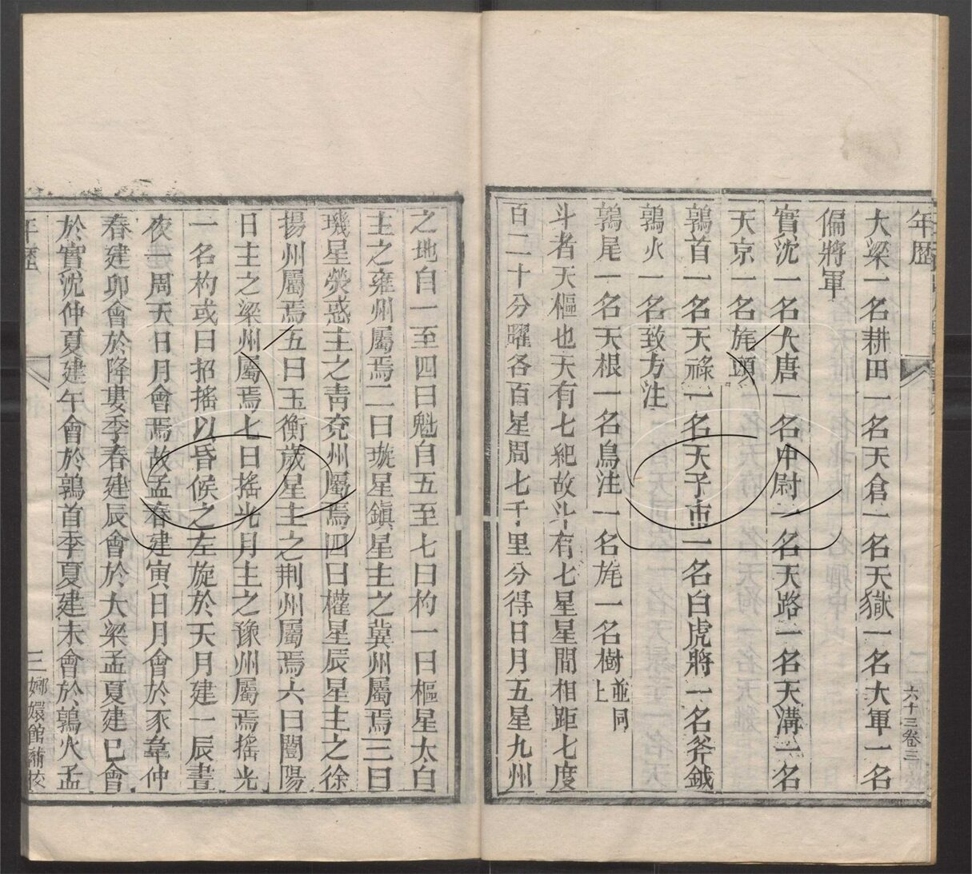 年歷
六十三卷三
大梁一名耕田一名天倉一名天獄一名大軍一名
偏將軍
實沈一名大唐一名中尉一名天路一名天溝一名
天京一名旄頭
鶉首一名天祿一名天子市一名白虎將一名斧鉞
鶉火一名致方注
鶉尾一名天根一名鳥注一名旄一名樹並同上
斗者天樞也天有七紀故斗有七星星間相距七度
百二十分曜各百星周七千里分得日月五星九州
之地自一至四曰魁自五至七曰杓一曰樞星太白
主之雍州屬焉二曰璇星鎮星主之冀州屬焉三曰
璣星熒惑主之靑兗州屬焉四曰權星辰星主之徐
揚州屬焉五曰玉衡歲星主之荆州屬焉六曰闓陽
日主之梁州屬焉七曰搖光月主之豫州屬焉搖光
一名杓或曰招搖以昏候之左旋於天月建一辰晝
夜一周天日月會焉故孟春建寅日月會於豕韋仲
春建卯會於降婁季春建辰會於大梁孟夏建巳會
於實沈仲夏建午會於鶉首季夏建未會於鶉火孟
年歷
三
嫏嬛館補校